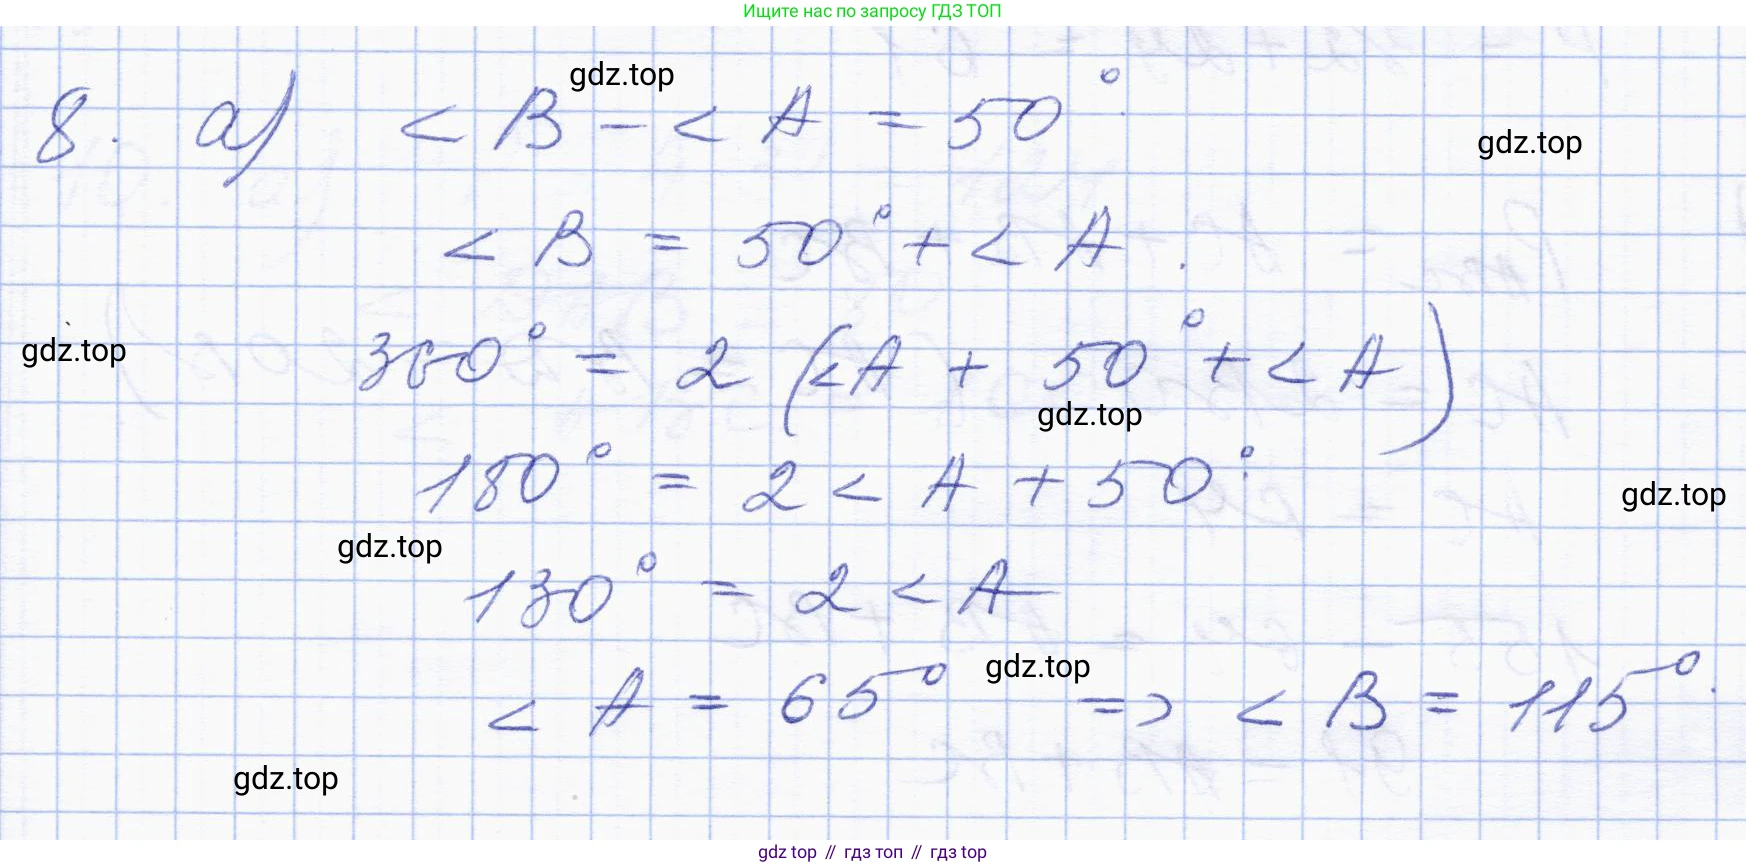 Ищите нас по запросу ГДЗ ТОП
gdz.top
8. а) < B - < A = 50°
gdz.top
< B = 50° + < A.
gdz.top
360° = 2 (< A + 50° + < A)
gdz.top
180° = 2 < A + 50°
gdz.top
gdz.top
130° = 2 < A
gdz.top
< A = 65° => < B = 115°.
gdz.top
gdz top // гдз топ // гдз top